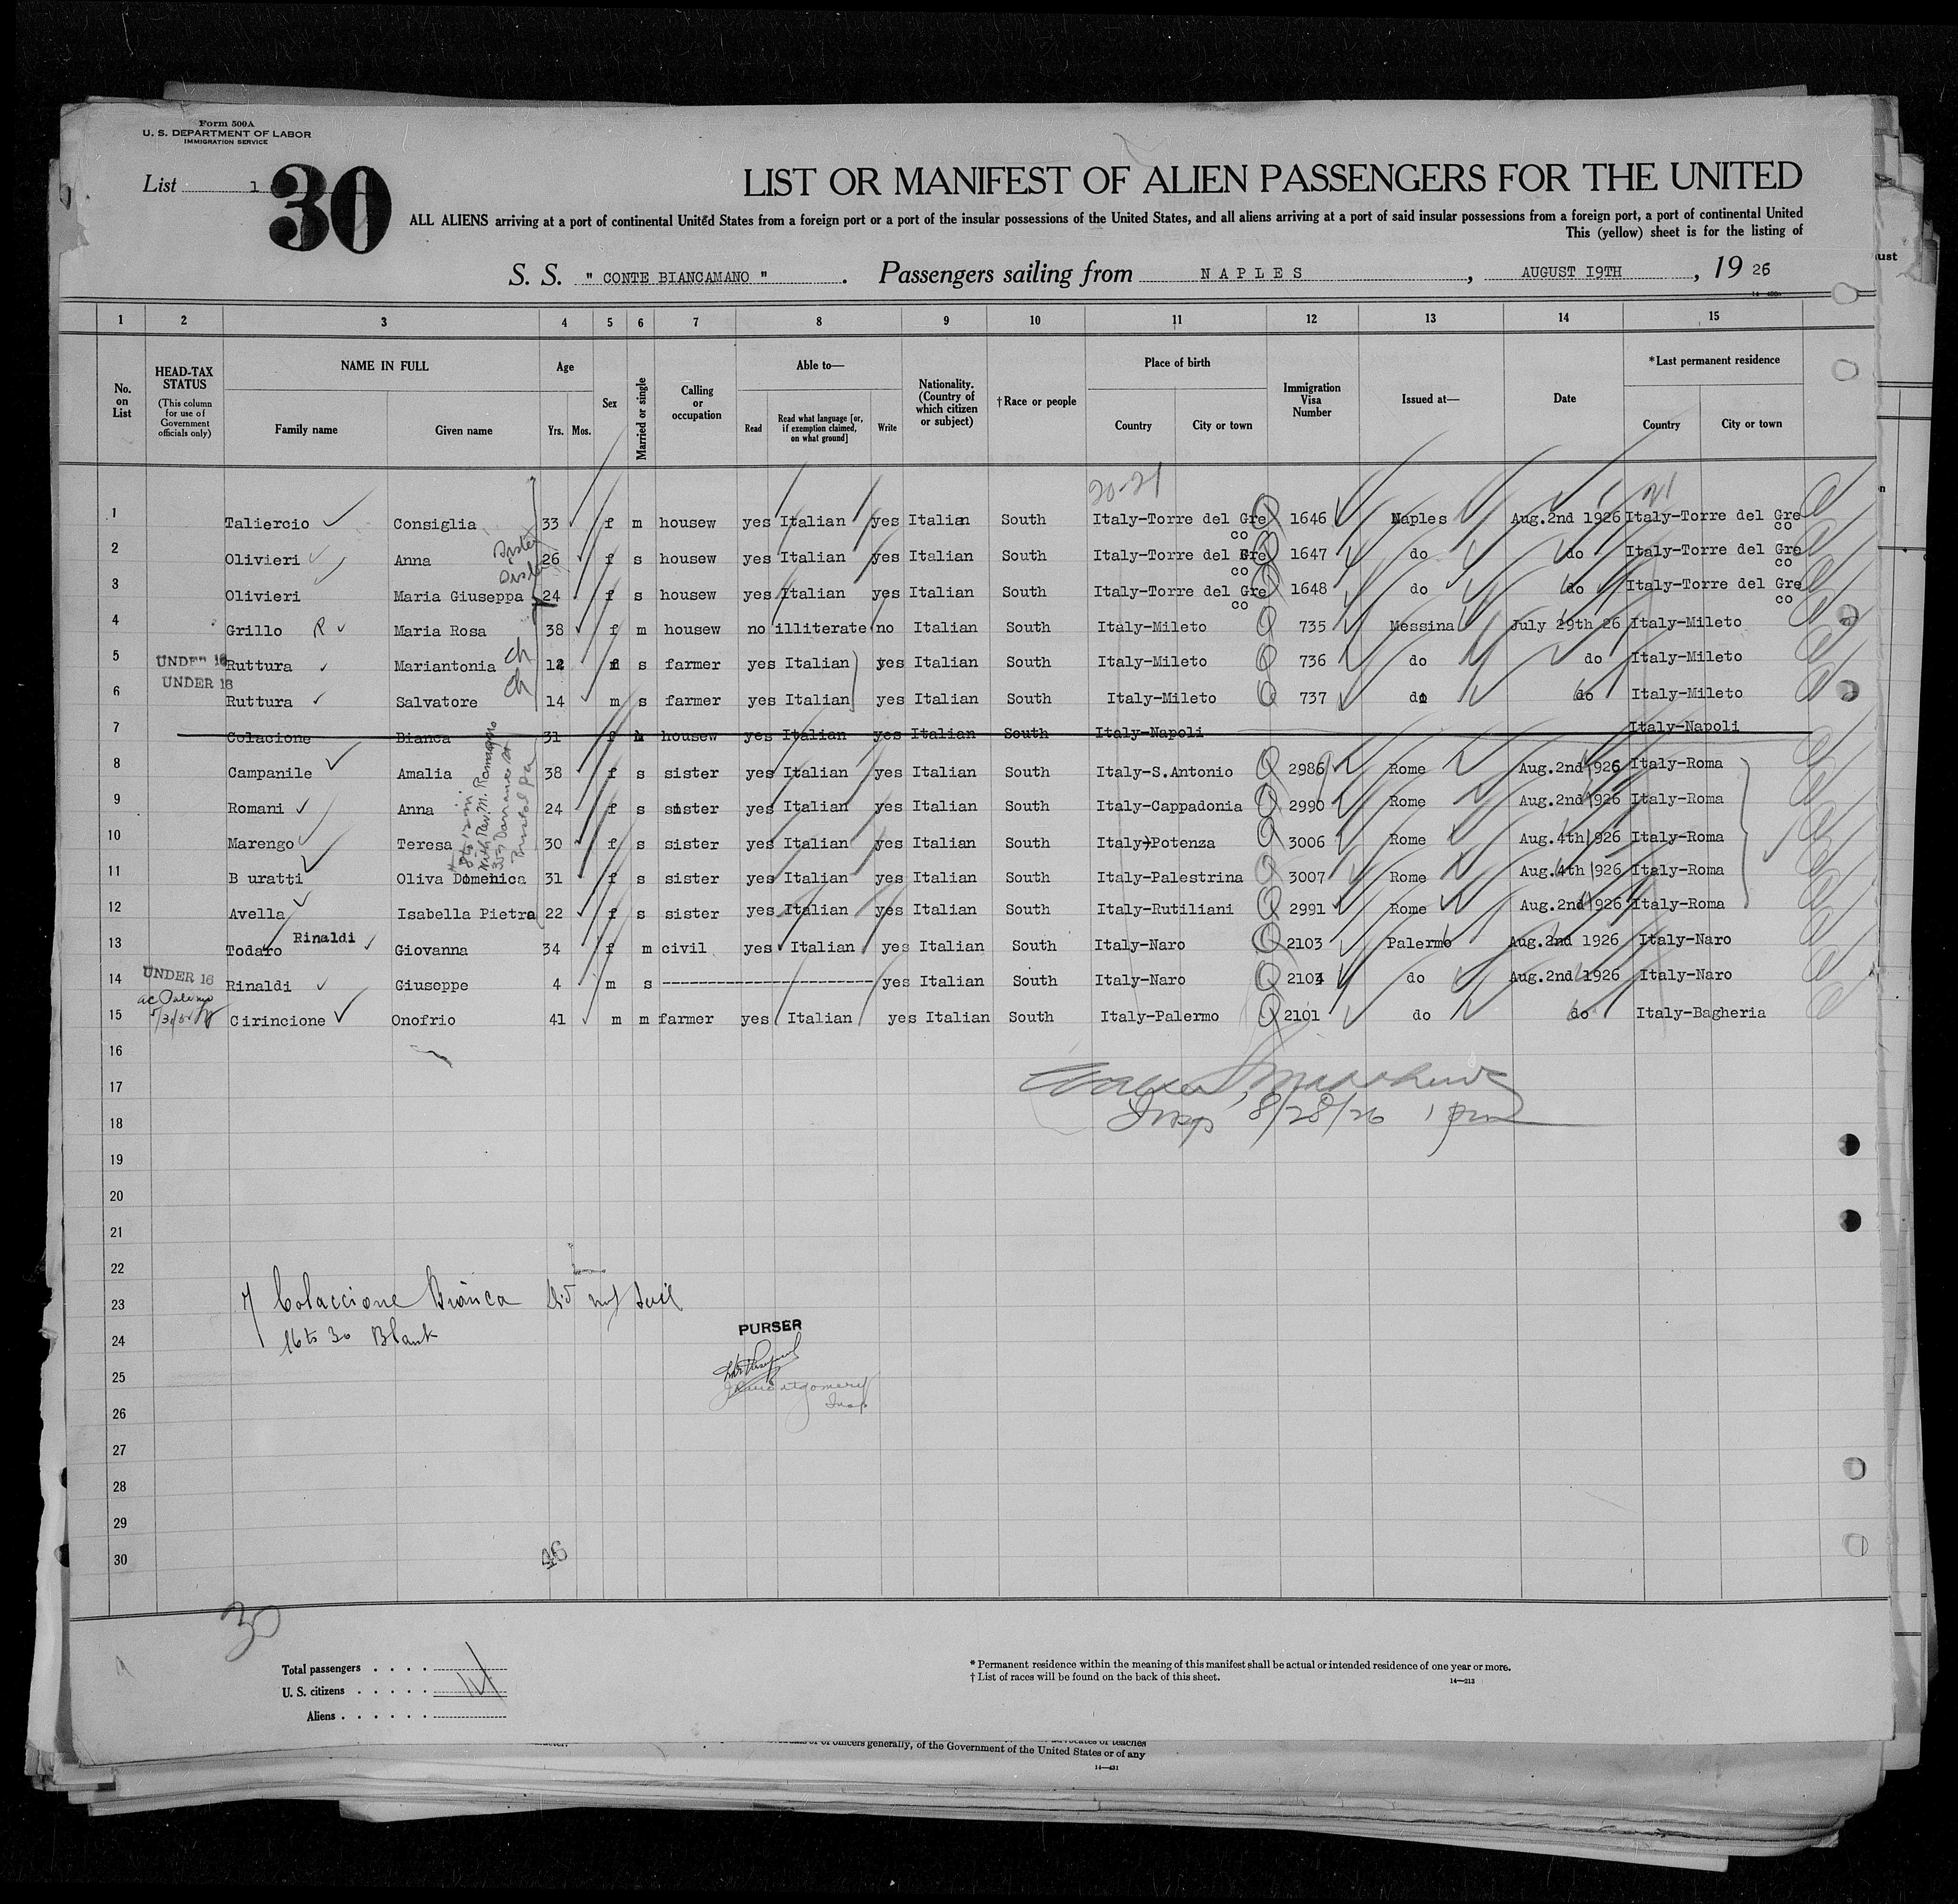 Form 500A
U. S. DEPARTMENT OF LABOR
IMMIGRATION SERVICE
List 1
30
LIST OR MANIFEST OF ALIEN PASSENGERS FOR THE UNITED
ALL ALIENS arriving at a port of continental United States from a foreign port or a port of the insular possessions of the United States, and all aliens arriving at a port of said insular possessions from a foreign port, a port of continental United
This (yellow) sheet is for the listing of
S. S. " CONTE BIANCAMANO ". Passengers sailing from NAPLES, AUGUST I9TH, 19 26
1 2 3 4 5 6 7 8 9 10 11 12 13 14 15
No. on List
HEAD-TAX STATUS
(This column for use of Government officials only)
NAME IN FULL
Family name Given name
Age
Yrs. Mos.
Sex
Married or single
Calling or occupation
Able to—
Read
Read what language [or, if exemption claimed, on what ground]
Write
Nationality. (Country of which citizen or subject)
†Race or people
Place of birth
Country City or town
Immigration Visa Number
Issued at—
Date
*Last permanent residence
Country City or town
20-21 21
1 Taliercio Consiglia 33 f m housew yes Italian yes Italian South Italy-Torre del Gre co 1646 Naples Aug.2nd 1926 Italy-Torre del Gre co
2 Olivieri Anna sister 26 f s housew yes Italian yes Italian South Italy-Torre del Gre co 1647 do do Italy-Torre del Gre co
3 Olivieri Maria Giuseppa 24 f s housew yes Italian yes Italian South Italy-Torre del Gre co 1648 do do Italy-Torre del Gre co
4 Grillo R Maria Rosa 38 f m housew no illiterate no Italian South Italy-Mileto 735 Messina July 29th 26 Italy-Mileto
5 UNDER 16 Ruttura Mariantonia ch 12 f s farmer yes Italian yes Italian South Italy-Mileto 736 do do Italy-Mileto
6 UNDER 16 Ruttura Salvatore ch 14 m s farmer yes Italian yes Italian South Italy-Mileto 737 do do Italy-Mileto
7 Colacione Bianca 31 f m housew yes Italian yes Italian South Italy-Napoli Italy-Napoli
8 Campanile Amalia 38 f s sister yes Italian yes Italian South Italy-S.Antonio 2986 Rome Aug.2nd 1926 Italy-Roma
9 Romani Anna 24 f s sister yes Italian yes Italian South Italy-Cappadonia 2990 Rome Aug.2nd 1926 Italy-Roma
10 Marengo Teresa 30 f s sister yes Italian yes Italian South Italy-Potenza 3006 Rome Aug.4th 1926 Italy-Roma
11 B uratti Oliva Domenica 31 f s sister yes Italian yes Italian South Italy-Palestrina 3007 Rome Aug.4th 1926 Italy-Roma
12 Avella Isabella Pietra 22 f s sister yes Italian yes Italian South Italy-Rutiliani 2991 Rome Aug.2nd 1926 Italy-Roma
13 Todaro Rinaldi Giovanna 34 f m civil yes Italian yes Italian South Italy-Naro 2103 Palermo Aug.2nd 1926 Italy-Naro
14 UNDER 16 Rinaldi Giuseppe 4 m s ----------------------- yes Italian South Italy-Naro 2104 do Aug.2nd 1926 Italy-Naro
15 Cirincione Onofrio 41 m m farmer yes Italian yes Italian South Italy-Palermo 2101 do do Italy-Bagheria
16
17
Insp 8/28/26 1 pm
18
19
20
21
22
23
7 Colaccione Bianca did not sail
24
16 to 30 Blank
PURSER
25
Montgomery
Insp
26
27
28
29
30
46
30
Total passengers . . . .
U. S. citizens . . . . .
Aliens . . . . . .
* Permanent residence within the meaning of this manifest shall be actual or intended residence of one year or more.
† List of races will be found on the back of this sheet.
14—213
of officers generally, of the Government of the United States or of any
14—431